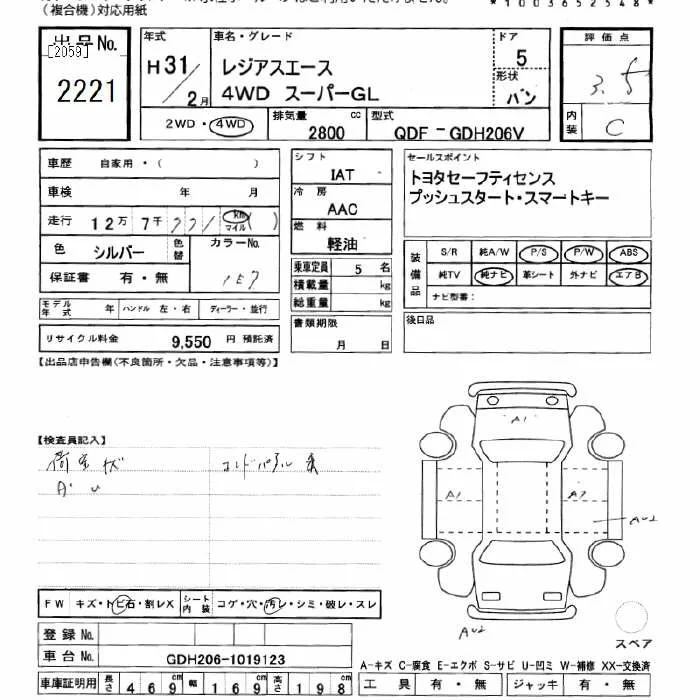 (複合機)対応用紙
*1003652548*
出品No.
[2059]
2221
年式
H31/2月
車名・グレード
レジアスエース
4WD スーパーGL
ドア
5
形状
バン
評価点
3.5
内装
C
2WD・4WD
排気量
2800 cc
型式
QDF-GDH206V
車歴 自家用・( )
車検 年 月
走行 12万7千771 km マイル ( )
色 シルバー 色替
カラーNo.
1E7
保証書 有・無
モデル年式 年 ハンドル 左・右 ディーラー・並行
リサイクル料金 9,550 円 預託済
シフト
IAT
冷房
AAC
燃料
軽油
乗車定員 5 名
積載量 kg
総重量 kg
書類期限
月 日
セールスポイント
トヨタセーフティセンス
プッシュスタート・スマートキー
装備品
S/R 純A/W P/S P/W ABS
純TV 純ナビ 革シート 外ナビ エアB
ナビ型番:
後日品
【出品店申告欄(不良箇所・欠品・注意事項等)】
【検査員記入】
荷室キズ
A U
A1
A1
A2
AU2
AU2
FW キズ・トビ石・割レX
シート内装 コゲ・穴・汚レ・シミ・破レ・スレ
登録No.
車台No. GDH206-1019123
車庫証明用 長さ 469 幅 169 高さ 198
スペア
A-キズ C-腐食 E-エクボ S-サビ U-凹ミ W-補修 XX-交換済
工具 有・無 ジャッキ 有・無